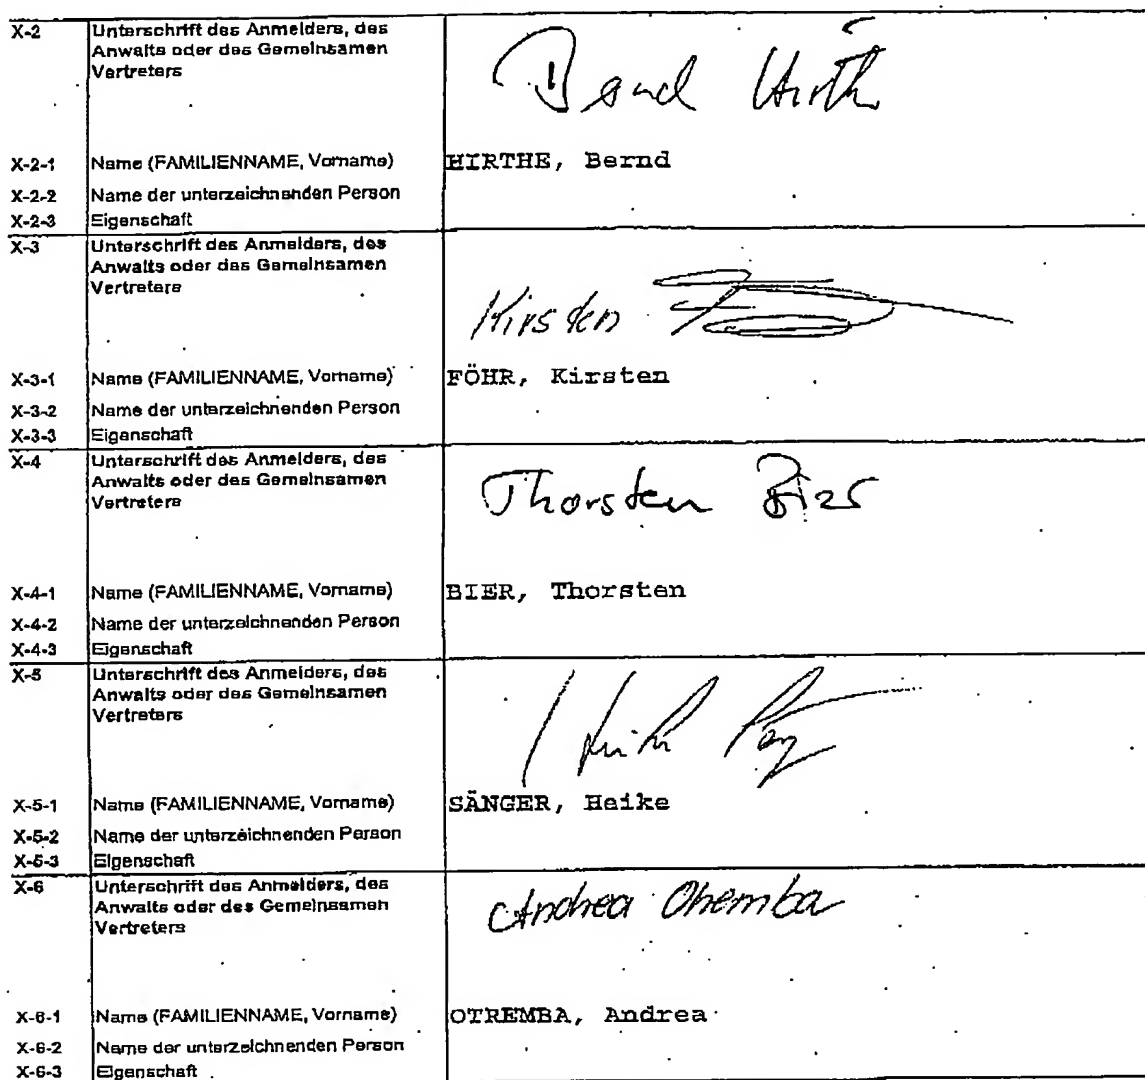 X-2 Unterschrift des Anmelders, des
Anwalts oder des Gemeinsamen
Vertreters
Bernd Hirthe
X-2-1 Name (FAMILIENNAME, Vorname) HIRTHE, Bernd
X-2-2 Name der unterzeichnenden Person
X-2-3 Eigenschaft
X-3 Unterschrift des Anmelders, des
Anwalts oder des Gemeinsamen
Vertreters
Kirsten
X-3-1 Name (FAMILIENNAME, Vorname) FÖHR, Kirsten
X-3-2 Name der unterzeichnenden Person
X-3-3 Eigenschaft
X-4 Unterschrift des Anmelders, des
Anwalts oder des Gemeinsamen
Vertreters
Thorsten Bier
X-4-1 Name (FAMILIENNAME, Vorname) BIER, Thorsten
X-4-2 Name der unterzeichnenden Person
X-4-3 Eigenschaft
X-5 Unterschrift des Anmelders, des
Anwalts oder des Gemeinsamen
Vertreters
X-5-1 Name (FAMILIENNAME, Vorname) SÄNGER, Heike
X-5-2 Name der unterzeichnenden Person
X-5-3 Eigenschaft
X-6 Unterschrift des Anmelders, des
Anwalts oder des Gemeinsamen
Vertreters
Andrea Otremba
X-6-1 Name (FAMILIENNAME, Vorname) OTREMBA, Andrea
X-6-2 Name der unterzeichnenden Person
X-6-3 Eigenschaft